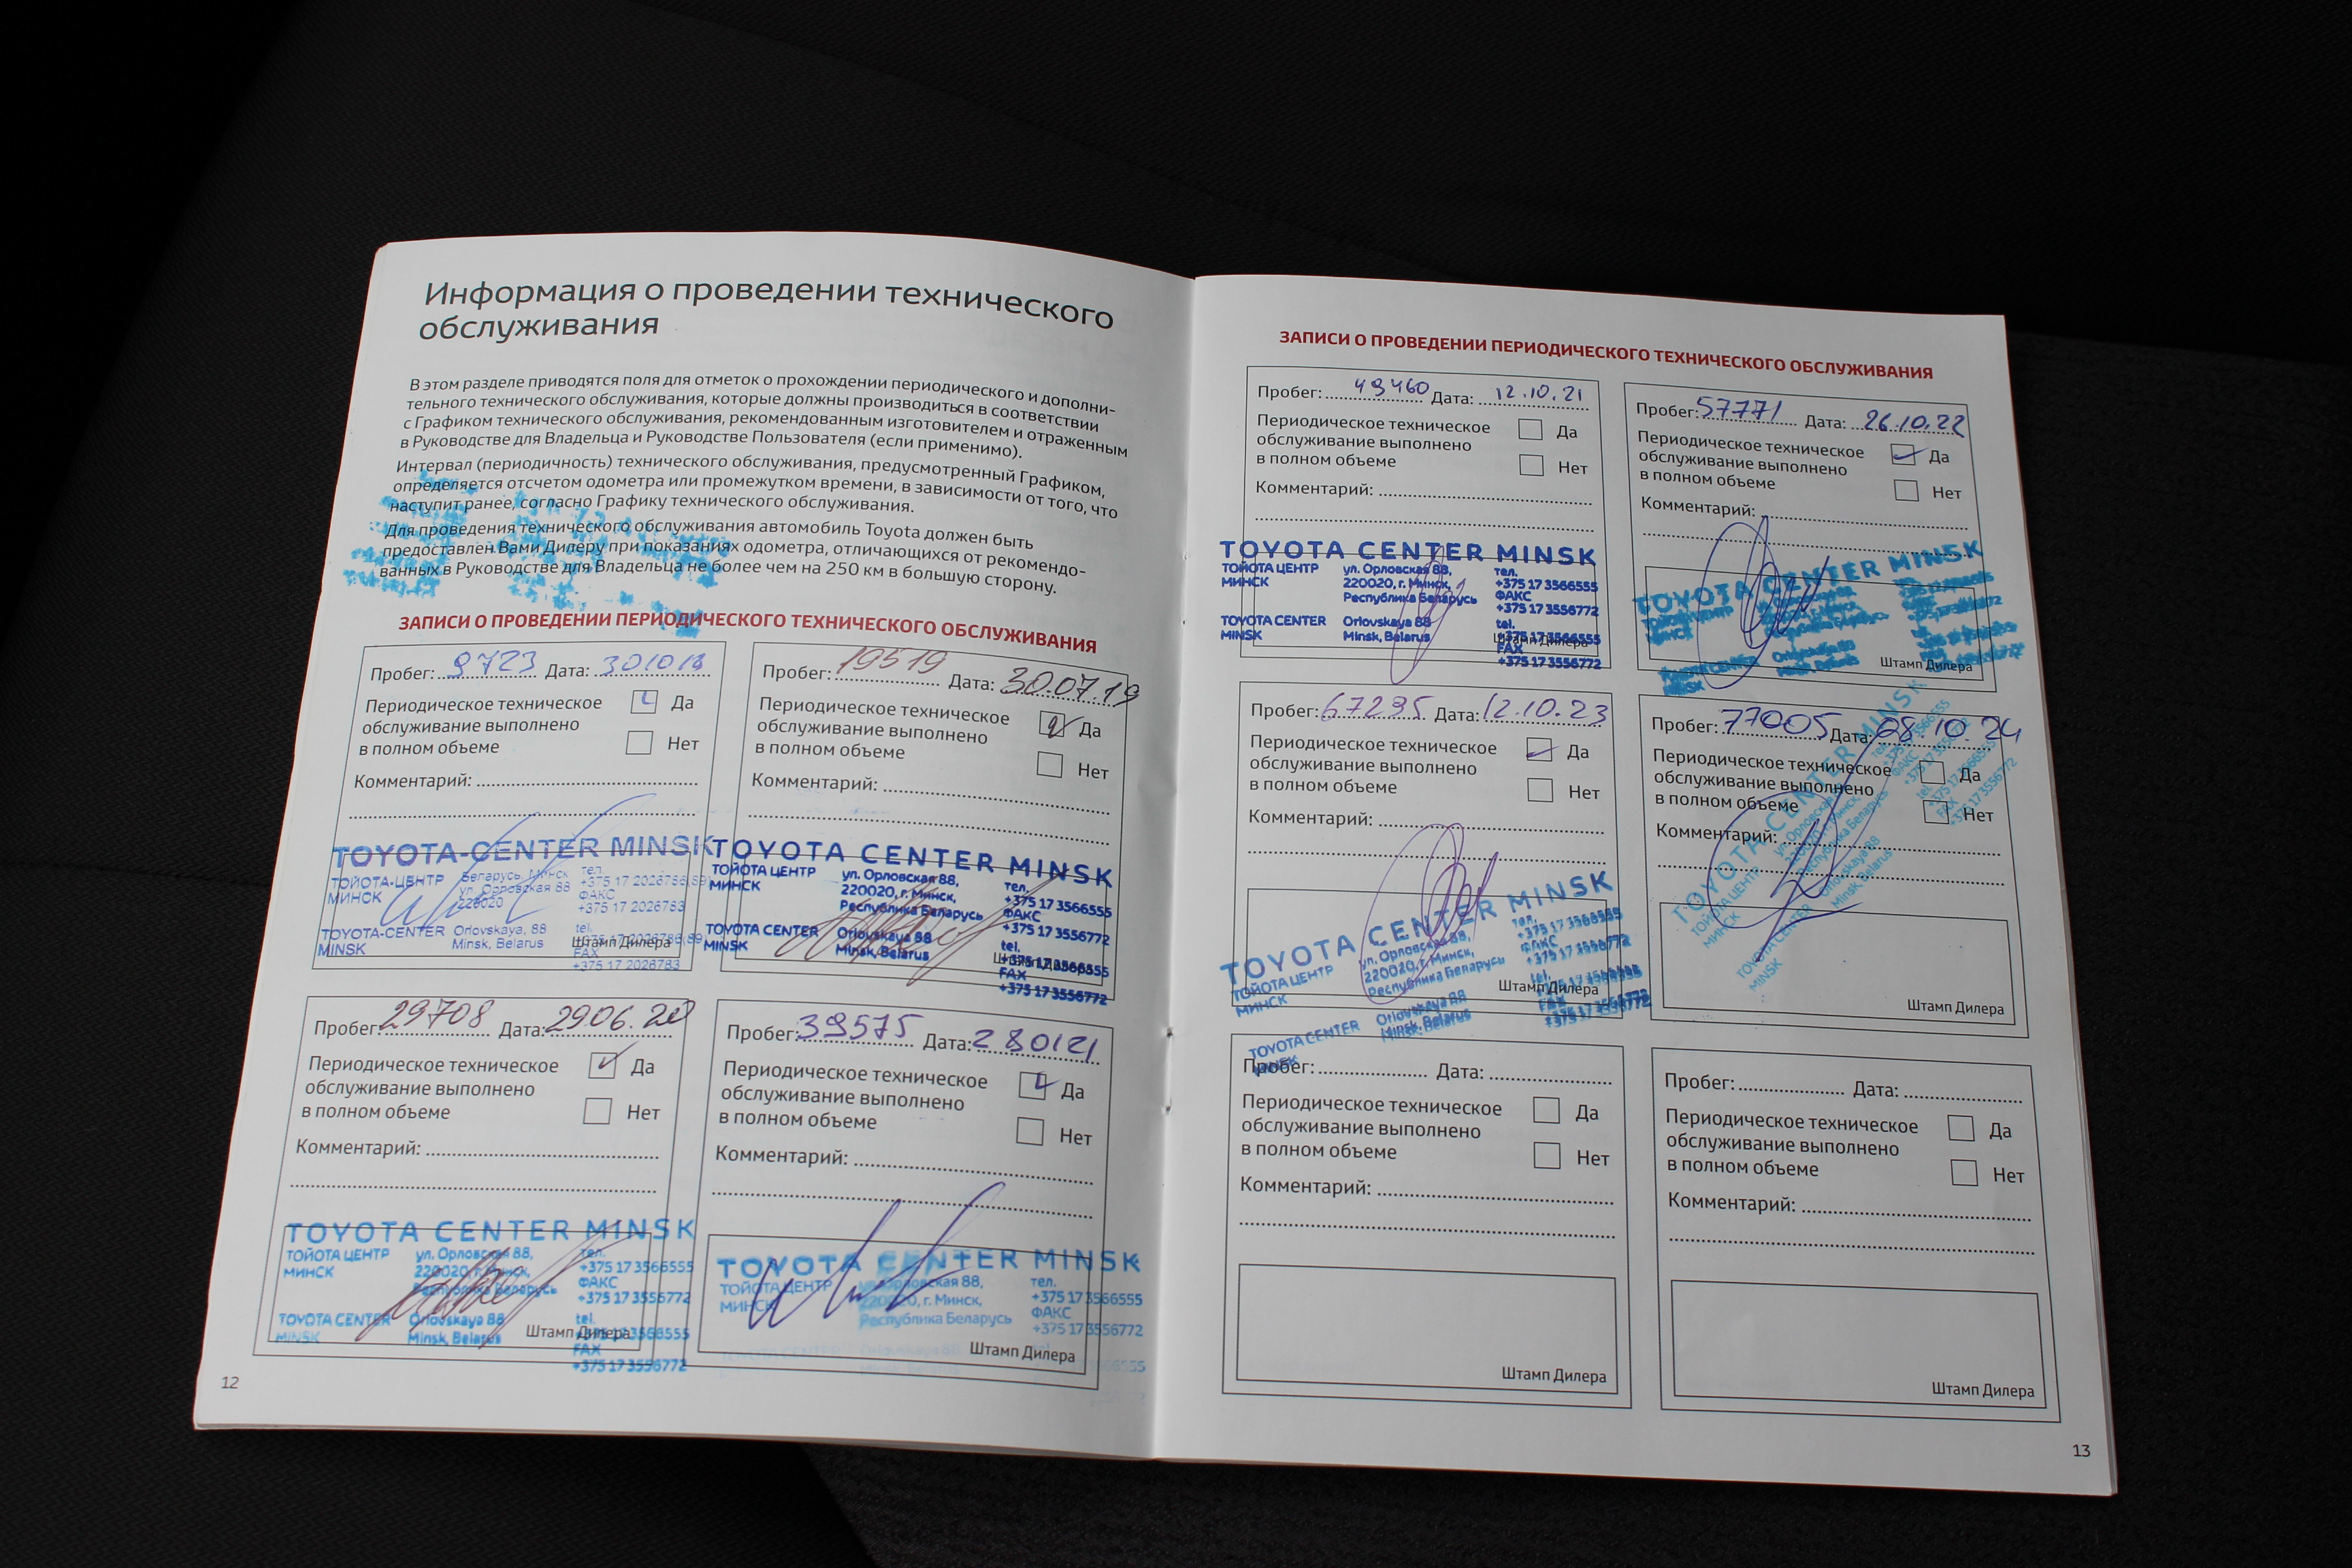 Информация о проведении технического
обслуживания
В этом разделе приводятся поля для отметок о прохождении периодического и дополни-
тельного технического обслуживания, которые должны производиться в соответствии
с Графиком технического обслуживания, рекомендованным изготовителем и отраженным
в Руководстве для Владельца и Руководстве Пользователя (если применимо).
Интервал (периодичность) технического обслуживания, предусмотренный Графиком,
определяется отсчетом одометра или промежутком времени, в зависимости от того, что
наступит ранее, согласно Графику технического обслуживания.
Для проведения технического обслуживания автомобиль Toyota должен быть
предоставлен Вами Дилеру при показаниях одометра, отличающихся от рекомендо-
ванных в Руководстве для Владельца не более чем на 250 км в большую сторону.
ЗАПИСИ О ПРОВЕДЕНИИ ПЕРИОДИЧЕСКОГО ТЕХНИЧЕСКОГО ОБСЛУЖИВАНИЯ
Пробег: 9723 Дата: 301018
Периодическое техническое
обслуживание выполнено
в полном объеме
Да
Нет
Комментарий:
TOYOTA-CENTER MINSK
ТОЙОТА-ЦЕНТР
МИНСК
Беларусь, Минск
ул. Орловская 88
220020
тел.
+375 17 2026786,89
ФАКС
+375 17 2026783
TOYOTA-CENTER
MINSK
Orlovskaya, 88
Minsk, Belarus
tel.
+375 17 2026786,89
FAX
+375 17 2026783
Штамп Дилера
Пробег: 19519 Дата: 30.07.19
Периодическое техническое
обслуживание выполнено
в полном объеме
Да
Нет
Комментарий:
TOYOTA CENTER MINSK
ТОЙОТА ЦЕНТР
МИНСК
ул. Орловская 88,
220020, г. Минск,
Республика Беларусь
тел.
+375 17 3566555
ФАКС
+375 17 3556772
TOYOTA CENTER
MINSK
Orlovskaya 88
Minsk, Belarus
tel.
+375 17 3566555
FAX
+375 17 3556772
Штамп Дилера
Пробег: 29708 Дата: 29.06.20
Периодическое техническое
обслуживание выполнено
в полном объеме
Да
Нет
Комментарий:
TOYOTA CENTER MINSK
ТОЙОТА ЦЕНТР
МИНСК
ул. Орловская 88,
220020, г. Минск,
Республика Беларусь
тел.
+375 17 3566555
ФАКС
+375 17 3556772
TOYOTA CENTER
MINSK
Orlovskaya 88
Minsk, Belarus
tel.
+375 17 3566555
FAX
+375 17 3556772
Штамп Дилера
Пробег: 39575 Дата: 280121
Периодическое техническое
обслуживание выполнено
в полном объеме
Да
Нет
Комментарий:
TOYOTA CENTER MINSK
ТОЙОТА ЦЕНТР
МИНСК
ул. Орловская 88,
220020, г. Минск,
Республика Беларусь
тел.
+375 17 3566555
ФАКС
+375 17 3556772
Штамп Дилера
12
ЗАПИСИ О ПРОВЕДЕНИИ ПЕРИОДИЧЕСКОГО ТЕХНИЧЕСКОГО ОБСЛУЖИВАНИЯ
Пробег: 49460 Дата: 12.10.21
Периодическое техническое
обслуживание выполнено
в полном объеме
Да
Нет
Комментарий:
TOYOTA CENTER MINSK
ТОЙОТА ЦЕНТР
МИНСК
ул. Орловская 88,
220020, г. Минск,
Республика Беларусь
тел.
+375 17 3566555
ФАКС
+375 17 3556772
TOYOTA CENTER
MINSK
Orlovskaya 88
Minsk, Belarus
tel.
+375 17 3566555
FAX
+375 17 3556772
Штамп Дилера
Пробег: 57771 Дата: 26.10.22
Периодическое техническое
обслуживание выполнено
в полном объеме
Да
Нет
Комментарий:
TOYOTA CENTER MINSK
Orlovskaya 88
Minsk, Belarus
Штамп Дилера
Пробег: 67295 Дата: 12.10.23
Периодическое техническое
обслуживание выполнено
в полном объеме
Да
Нет
Комментарий:
TOYOTA CENTER MINSK
ТОЙОТА ЦЕНТР
МИНСК
ул. Орловская 88,
220020, г. Минск,
Республика Беларусь
тел.
+375 17 3566555
ФАКС
+375 17 3556772
TOYOTA CENTER
MINSK
Orlovskaya 88
Minsk, Belarus
tel.
FAX
+375 17 3556772
Штамп Дилера
Пробег: 77005 Дата: 08.10.24
Периодическое техническое
обслуживание выполнено
в полном объеме
Да
Нет
Комментарий:
TOYOTA CENTER MINSK
ТОЙОТА ЦЕНТР
МИНСК
ул. Орловская 88,
220020, г. Минск,
Республика Беларусь
тел.
+375 17 3566555
ФАКС
+375 17 3556772
TOYOTA CENTER
MINSK
Orlovskaya 88
Minsk, Belarus
tel.
+375 17 3566555
FAX
+375 17 3556772
Штамп Дилера
Пробег: Дата:
Периодическое техническое
обслуживание выполнено
в полном объеме
Да
Нет
Комментарий:
Штамп Дилера
Пробег: Дата:
Периодическое техническое
обслуживание выполнено
в полном объеме
Да
Нет
Комментарий:
Штамп Дилера
13